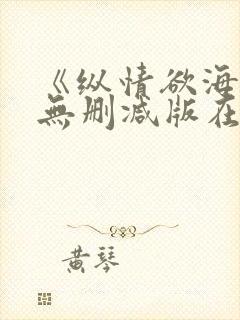 《纵情欲海
無删减版在
黄琴